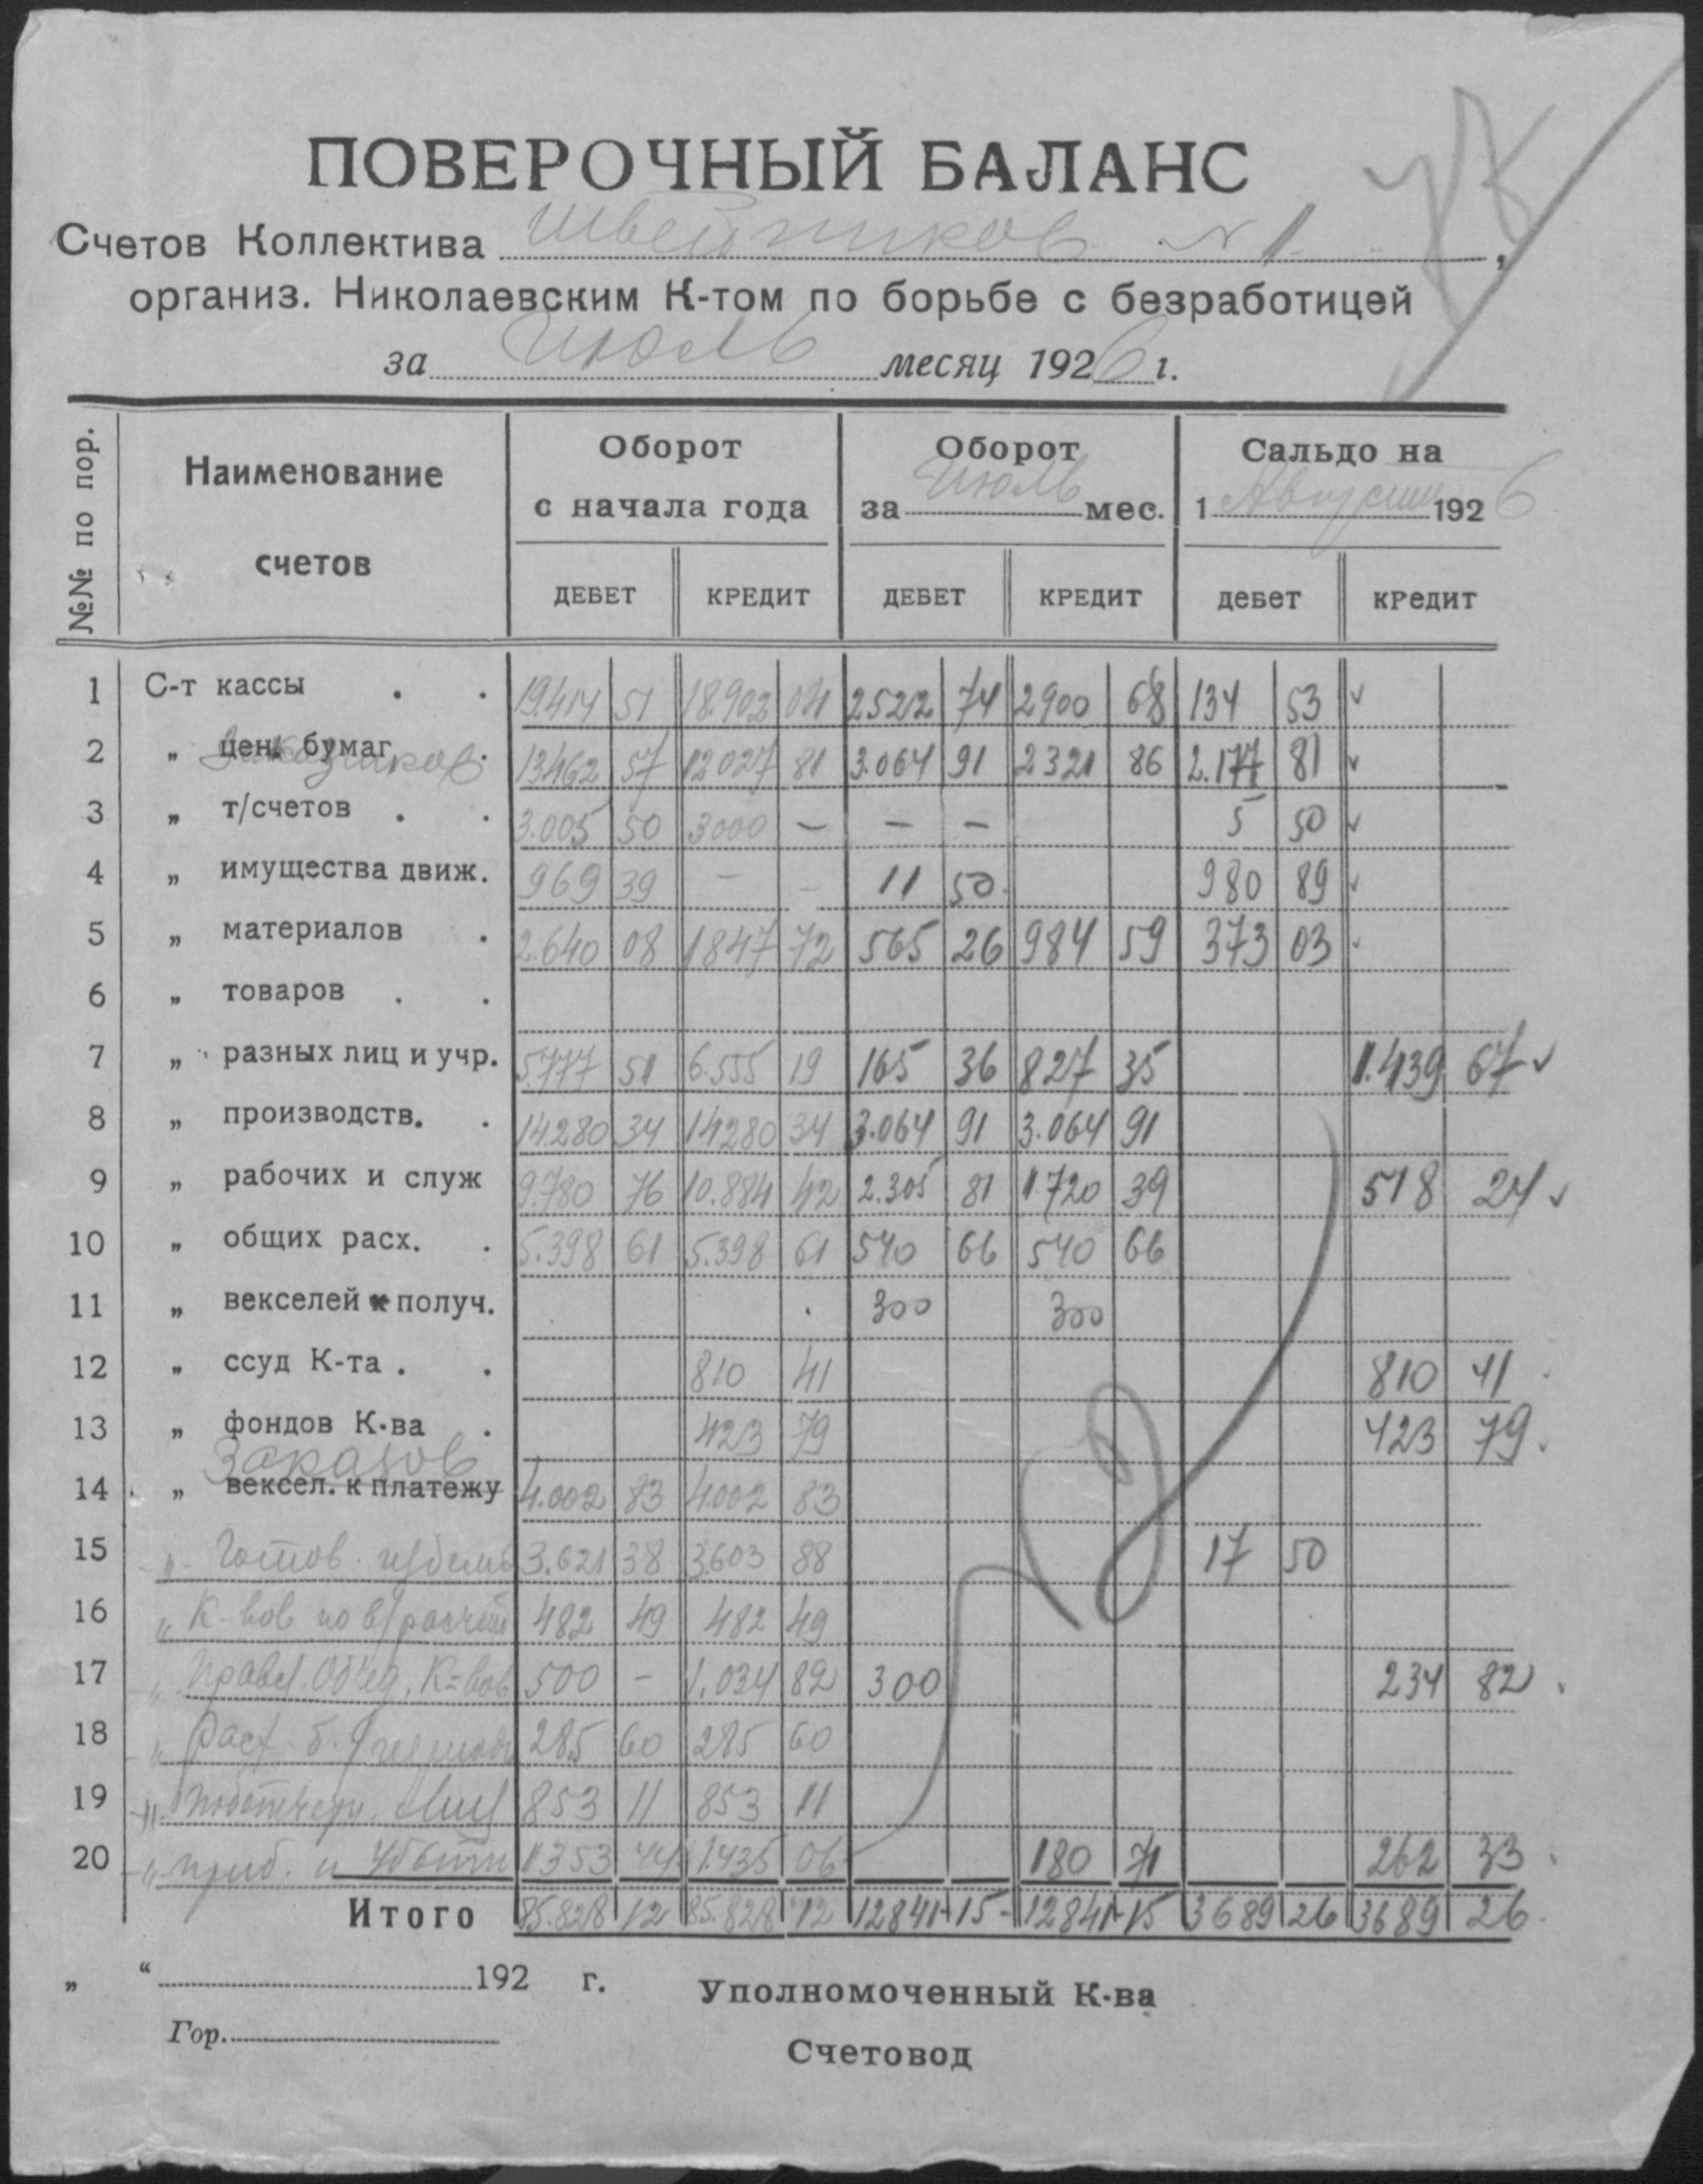 ПОВЕРОЧНЫЙ БАЛАНС
Счетов Коллектива Швейников №1,
организ. Николаевским К-том по борьбе с безработицей
за Июль месяц 1926 г.
№№ по пор. Наименование счетов Оборот с начала года Оборот за Июль мес. Сальдо на 1 Августа 1926
ДЕБЕТ КРЕДИТ ДЕБЕТ КРЕДИТ дебет кредит
1 С-т кассы . . 19414 51 18.902 04 2522 74 2900 68 134 53 ✓
2 „ цен. бумаг Заказчиков 13462 57 12027 81 3.064 91 2321 86 2.177 81 ✓
3 „ т/счетов . . 3.005 50 3000 — — — 5 50 ✓
4 „ имущества движ. 969 39 — — 11 50 980 89 ✓
5 „ материалов . 2.640 08 1847 72 565 26 984 59 373 03
6 „ товаров . .
7 „ разных лиц и учр. 5.777 51 6.555 19 165 36 827 35 1.439 67 ✓
8 „ производств. . 14280 34 14280 34 3.064 91 3.064 91
9 „ рабочих и служ 9.780 76 10.884 42 2.305 81 1.720 39 518 24 ✓
10 „ общих расх. . 5.398 61 5.398 61 540 66 540 66
11 „ векселей к получ. 300 300
12 „ ссуд К-та . . 810 41 810 41
13 „ фондов К-ва . 423 79 423 79
Заказов
14 „ вексел. к платежу 4.002 83 4002 83
15 „ Готов. 3.621 38 3603 88 17 50
16 „ К-вов по в/расчет 482 49 482 49
17 „ Правл. Об'ед. К-вов 500 — 1.034 82 300 234 82
18 „ Расх. б. 285 60 285 60
19 „ Подотчетн. лиц 853 11 853 11
20 „ приб. и убытк 1353 44 1.435 06 180 71 262 33
Итого 85.828 12 85.828 12 12841 15 12841 15 3689 26 3689 26
„ “ 192 г. Уполномоченный К-ва
Гор.
Счетовод